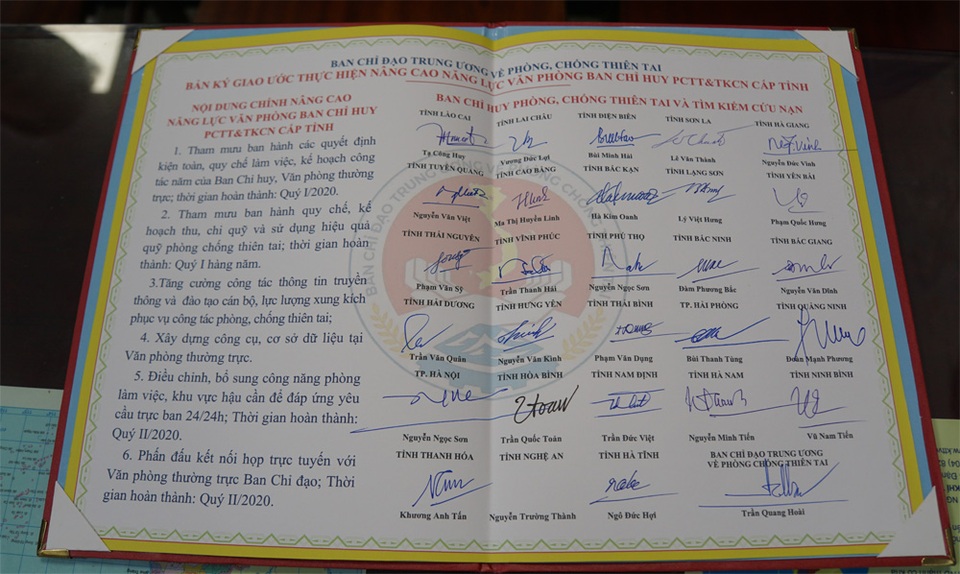 BAN CHỈ ĐẠO TRUNG ƯƠNG VỀ PHÒNG, CHỐNG THIÊN TAI
BẢN KÝ GIAO ƯỚC THỰC HIỆN NÂNG CAO NĂNG LỰC VĂN PHÒNG BAN CHỈ HUY PCTT&TKCN CẤP TỈNH
NỘI DUNG CHÍNH NÂNG CAO
NĂNG LỰC VĂN PHÒNG BAN CHỈ HUY
PCTT&TKCN CẤP TỈNH
1. Tham mưu ban hành các quyết định
kiện toàn, quy chế làm việc, kế hoạch công
tác năm của Ban Chỉ huy, Văn phòng thường
trực; thời gian hoàn thành: Quý I/2020.
2. Tham mưu ban hành quy chế, kế
hoạch thu, chi quỹ và sử dụng hiệu quả
quỹ phòng chống thiên tai; thời gian hoàn
thành: Quý I hàng năm.
3.Tăng cường công tác thông tin truyền
thông và đào tạo cán bộ, lực lượng xung kích
phục vụ công tác phòng, chống thiên tai;
4. Xây dựng công cụ, cơ sở dữ liệu tại
Văn phòng thường trực.
5. Điều chỉnh, bổ sung công năng phòng
làm việc, khu vực hậu cần để đáp ứng yêu
cầu trực ban 24/24h; Thời gian hoàn thành:
Quý II/2020.
6. Phấn đấu kết nối họp trực tuyến với
Văn phòng thường trực Ban Chỉ đạo; Thời
gian hoàn thành: Quý II/2020.
BAN CHỈ HUY PHÒNG, CHỐNG THIÊN TAI VÀ TÌM KIẾM CỨU NẠN
TỈNH LÀO CAI TỈNH LAI CHÂU TỈNH ĐIỆN BIÊN TỈNH SƠN LA TỈNH HÀ GIANG
Tạ Công Huy Vương Đức Lợi Bùi Minh Hải Lê Văn Thành Nguyễn Đức Vinh
TỈNH TUYÊN QUANG TỈNH CAO BẰNG TỈNH BẮC KẠN TỈNH LẠNG SƠN TỈNH YÊN BÁI
Nguyễn Văn Việt Ma Thị Huyền Linh Hà Kim Oanh Lý Việt Hưng Phạm Quốc Hưng
TỈNH THÁI NGUYÊN TỈNH VĨNH PHÚC TỈNH PHÚ THỌ TỈNH BẮC NINH TỈNH BẮC GIANG
Phạm Văn Sỹ Trần Thanh Hải Nguyễn Ngọc Sơn Đàm Phương Bắc Nguyễn Văn Dĩnh
TỈNH HẢI DƯƠNG TỈNH HƯNG YÊN TỈNH THÁI BÌNH TP. HẢI PHÒNG TỈNH QUẢNG NINH
Trần Văn Quân Nguyễn Văn Kình Phạm Văn Dụng Bùi Thanh Tùng Đoàn Mạnh Phương
TP. HÀ NỘI TỈNH HÒA BÌNH TỈNH NAM ĐỊNH TỈNH HÀ NAM TỈNH NINH BÌNH
Nguyễn Ngọc Sơn Trần Quốc Toản Trần Đức Việt Nguyễn Minh Tiến Vũ Nam Tiến
TỈNH THANH HÓA TỈNH NGHỆ AN TỈNH HÀ TĨNH BAN CHỈ ĐẠO TRUNG ƯƠNG
VỀ PHÒNG CHỐNG THIÊN TAI
Khương Anh Tấn Nguyễn Trường Thành Ngô Đức Hợi Trần Quang Hoài